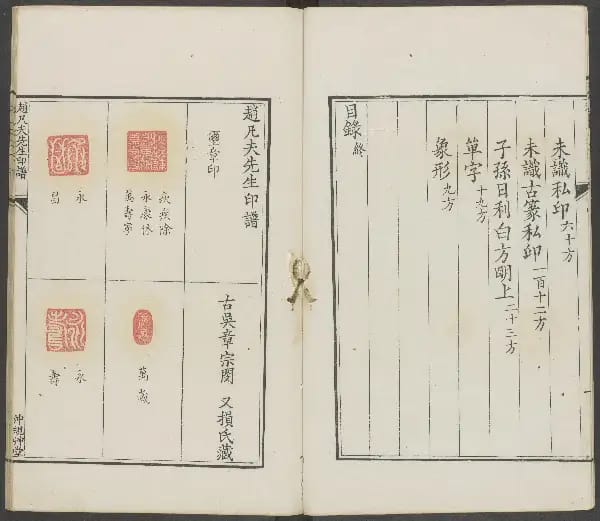 未識私印 六十方
未識古篆私印 一百十二方
子孫日利白方明上 二十三方
單字 十九方
象形 九方
目錄 終
趙凡夫先生印譜
璽章印
古吳章宗閔 又損氏藏
疢疾除
永康休
萬壽寧
萬歲
永
昌
永
壽
趙凡夫先生印譜